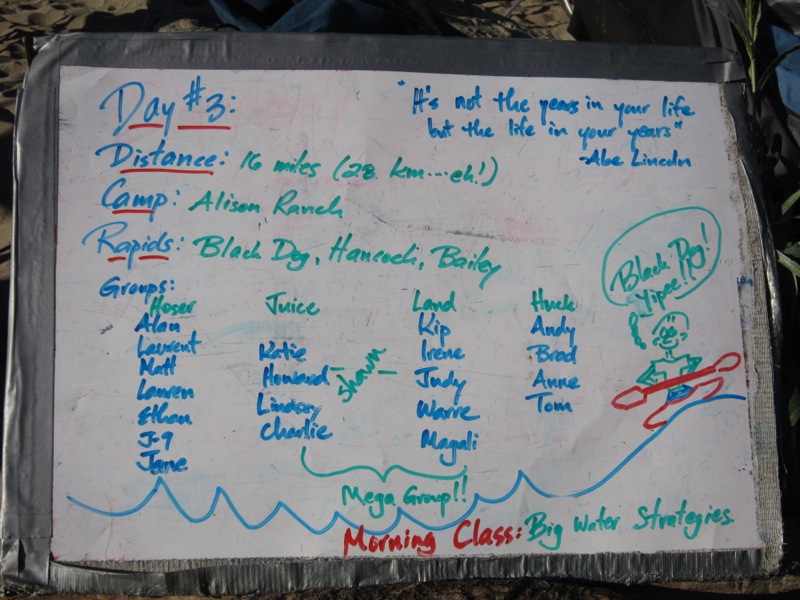 Day #3:
"It's not the years in your life
but the life in your years"
-Abe Lincoln
Distance: 16 miles (28 km....eh!)
Camp: Alison Ranch
Rapids: Black Dog, Hancock, Bailey
Black Dog!
Yipee!!
Groups:
Hoser Juice Land Huck
Alan
Laurent
Matt
Lauren
Ethan
J-9
Jane
Katie
Howard
Lindsay
Charlie
- Shawn -
Kip
Irene
Judy
Warre
Magali
Andy
Brad
Anne
Tom
Mega Group!!
Morning Class: Big Water Strategies.